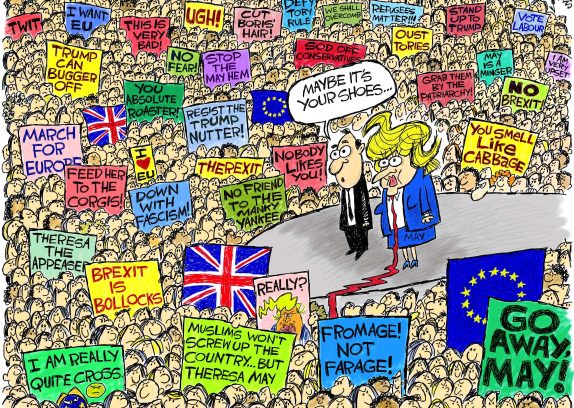 TWIT
I WANT
EU
THIS IS
VERY
BAD!
UGH!
CUT
BORIS'
HAIR!
DEFY
TORY
RULE
WE SHALL
OVERCOMB
REFUGEES
MATTER!!!
STAND UP
TO TRUMP
VOTE
LABOUR
TRUMP
CAN
BUGGER
OFF
NO
FEAR!
STOP
THE
MAY HEM
GOD OFF
CONSERVATIVES
OUST
TORIES
MAY
IS A
MINGER
I AM
VERY
UPSET
MAYBE IT'S
YOUR SHOES...
GRAB THEM
BY THE
PATRIARCHY!
NO
BREXIT!
YOU
ABSOLUTE
ROASTER!
RESIST THE
TRUMP
NUTTER!
MARCH
FOR
EUROPE
I
EU
THEREXIT
NOBODY
LIKES
YOU!
YOU SMELL
LIKE
CABBAGE
FEED HER
TO THE
CORGIS!
DOWN
WITH
FASCISM!
NO FRIEND
TO THE
MANKY
YANKEE
MAY
THERESA
THE
APPEASER
BREXIT IS
BOLLOCKS
REALLY?
MUSLIMS WON'T
SCREW UP THE
COUNTRY...BUT
THERESA MAY
FROMAGE!
NOT
FARAGE!
GO
AWAY,
MAY!
I AM REALLY
QUITE CROSS